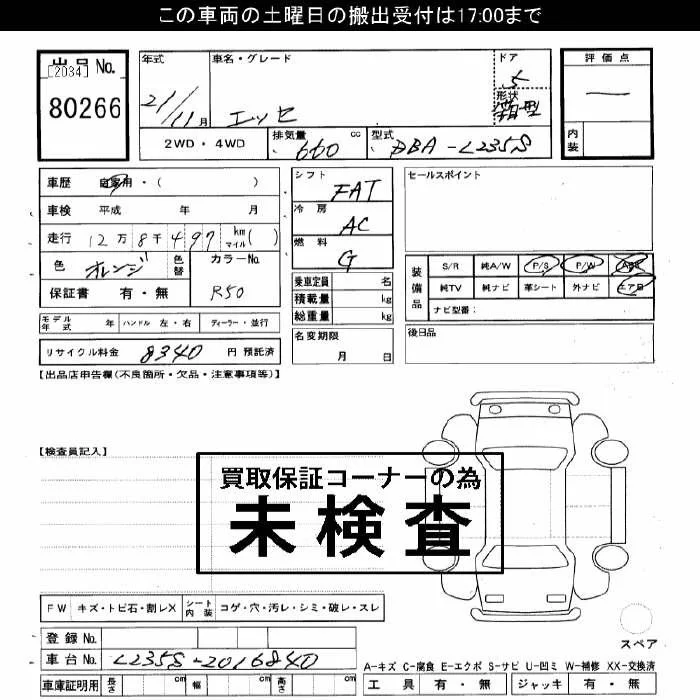 この車両の土曜日の搬出受付は17:00まで
出品No.
[2034]
80266
年式
21/11月
車名・グレード
エッセ
ドア
5
形状
箱型
評価点
―
内装
2WD・4WD
排気量 660 cc
型式 DBA-L235S
車歴 自家用・( )
車検 平成 年 月
走行 12万8千497 km マイル( )
色 オレンジ 色替
カラーNo. R50
保証書 有・無
シフト FAT
冷房 AC
燃料 G
乗車定員 名
積載量 kg
総重量 kg
セールスポイント
装備品
S/R 純A/W P/S P/W ABS
純TV 純ナビ 革シート 外ナビ エアB
ナビ型番:
モデル年式 年 ハンドル 左・右 ディーラー・並行
リサイクル料金 8340 円 預託済
名変期限
月 日
後日品
【出品店申告欄(不良箇所・欠品・注意事項等)】
【検査員記入】
買取保証コーナーの為
未検査
FW キズ・トビ石・割レX シート内装 コゲ・穴・汚レ・シミ・破レ・スレ
登録No.
車台No. L235S-2016840
車庫証明用 長さ cm 幅 cm 高さ cm
スペア
A-キズ C-腐食 E-エクボ S-サビ U-凹ミ W-補修 XX-交換済
工具 有・無 ジャッキ 有・無